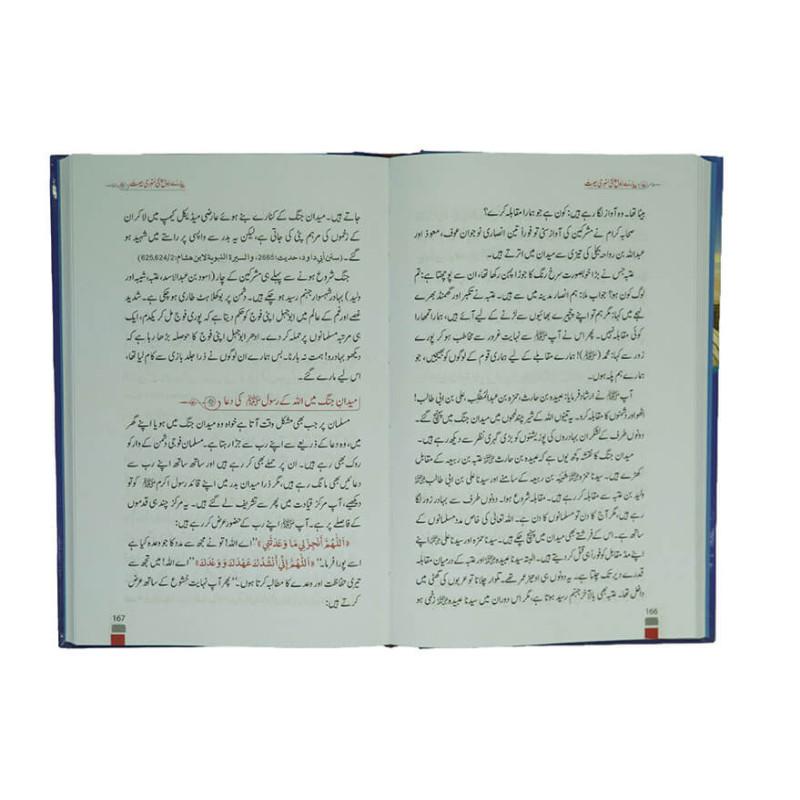 پیارے رسول ﷺ کی سنہری سیرت
بیٹا تھا۔ وہ آواز لگا رہے ہیں: کون ہے جو ہمارا مقابلہ کرے؟
صحابہ کرام نے مشرکین کی آواز سنی تو فوراً تین انصاری نوجوان عوف، معوذ اور
عبداللہ بن رواحہ بجلی کی تیزی سے میدان میں اترتے ہیں۔
عتبہ جس نے بڑا خوبصورت سرخ رنگ کا جوڑا پہن رکھا تھا، ان سے پوچھتا ہے: تم
لوگ کون ہو؟ جواب ملا: ہم انصار مدینہ میں سے ہیں۔ عتبہ نے تکبر اور گھمنڈ بھرے
لہجے میں کہا: مگر ہم تو اپنے چچیرے بھائیوں سے لڑنے کے لیے آئے ہیں، ہمارا تمھارا
کوئی مقابلہ نہیں۔ پھر اس نے آپ ﷺ سے نہایت غرور سے مخاطب ہو کر پورے
زور سے کہا: محمد (ﷺ)! ہمارے مقابلے کے لیے ہماری قوم کے لوگوں کو بھیجیں، جو
ہمارے ہم پلہ ہوں۔
آپ ﷺ نے ارشاد فرمایا: عبیدہ بن حارث، حمزہ بن عبدالمطلب، علی بن ابی طالب!
اٹھو اور دشمنوں کا مقابلہ کرو۔ یہ تینوں اللہ کے شیر چند لمحوں میں میدان جنگ میں پہنچ گئے۔
دونوں طرف کے لشکر ان بہادروں کی پوزیشنوں کو بڑی گہری نظر سے دیکھ رہے ہیں۔
میدان جنگ کا نقشہ کچھ یوں ہے کہ عبیدہ بن حارث رضی اللہ عنہ عتبہ بن ربیعہ کے مقابل
کھڑے ہیں۔ سیدنا حمزہ رضی اللہ عنہ شیبہ بن ربیعہ کے سامنے اور سیدنا علی بن ابی طالب رضی اللہ عنہ
ولید بن عتبہ سے مقابلہ کر رہے ہیں۔ مقابلہ شروع ہوا۔ دونوں طرف سے بہادر زور لگا
رہے ہیں، مگر آج کا دن تو مسلمانوں کا دن ہے۔ اللہ تعالی کی خاص مدد مسلمانوں کے
ساتھ ہے۔ اس کے فرشتے بھی میدان میں پہنچ چکے ہیں۔ سیدنا حمزہ اور سیدنا علی رضی اللہ عنہما اپنے
اپنے مدمقابل کو فوراً ہی قتل کر دیتے ہیں۔ البتہ سیدنا عبیدہ رضی اللہ عنہ اور عتبہ کے درمیان مقابلہ
قدرے دیر تک چلتا ہے۔ یہ دونوں ہی ادھیڑ عمر تھے۔ تلوار چلانا تو عربوں کی گھٹی میں
داخل تھا۔ عتبہ بھی بالآخر جہنم رسید ہوتا ہے، مگر اس دوران میں سیدنا عبیدہ رضی اللہ عنہ زخمی ہو
166
پیارے رسول ﷺ کی سنہری سیرت
جاتے ہیں۔ میدان جنگ کے کنارے بنے ہوئے عارضی میڈیکل کیمپ میں لا کر ان
کے زخموں کی مرہم پٹی کی جاتی ہے، لیکن یہ بدر سے واپسی پر راستے میں شہید ہو
گئے۔ (سنن أبي داود، حديث:2665، والسيرة النبوية لابن هشام:625,624/2)
جنگ شروع ہونے سے پہلے ہی مشرکین کے چار (اسود بن عبدالاسد، عتبہ، شیبہ اور
ولید) بہادر شہسوار جہنم رسید ہو چکے ہیں۔ دشمن پر بوکھلاہٹ طاری ہو چکی ہے۔ شدید
غصے اور غم کے عالم میں ابوجہل اپنی فوج کو حکم دیتا ہے کہ پوری فوج مل کر یکدم، ایک
ہی مرتبہ مسلمانوں پر حملہ کر دے۔ ادھر ابوجہل اپنی فوج کا حوصلہ بڑھا رہا ہے کہ
دیکھو بہادرو! ہمت نہ ہارنا۔ بس ہمارے ان لوگوں نے ذرا جلد بازی سے کام لیا تھا،
اس لیے مارے گئے۔
میدان جنگ میں اللہ کے رسول ﷺ کی دعا
مسلمان پر جب بھی مشکل وقت آتا ہے خواہ وہ میدان جنگ میں ہو یا اپنے گھر
میں، وہ دعا کے ذریعے سے اپنے رب سے جڑا رہتا ہے۔ مسلمان فوجی دشمن کے وار کو
روک بھی رہے ہیں۔ ان پر حملے بھی کر رہے ہیں اور ساتھ ساتھ اپنے رب سے
دعائیں بھی مانگ رہے ہیں، مگر ذرا میدان بدر میں اپنے قائد رسول اکرم ﷺ کو تو
دیکھیے، آپ مرکز قیادت میں پھر سے تشریف لے گئے ہیں۔ یہ مرکز چند ہی قدموں
کے فاصلے پر ہے۔ آپ ﷺ اپنے رب کے حضور عرض کر رہے ہیں:
«اَللّٰهُمَّ أَنْجِزْ لِي مَا وَعَدْتَّنِي» ”اے اللہ! تو نے مجھ سے مدد کا جو وعدہ کیا ہے
اسے پورا فرما۔“ «اَللّٰهُمَّ إِنِّي أَنْشُدُكَ عَهْدَكَ وَوَعْدَكَ» ”اے اللہ! میں تجھ سے
تیری حفاظت اور وعدے کا مطالبہ کرتا ہوں۔“ پھر آپ نہایت خشوع کے ساتھ عرض
کرتے ہیں:
167